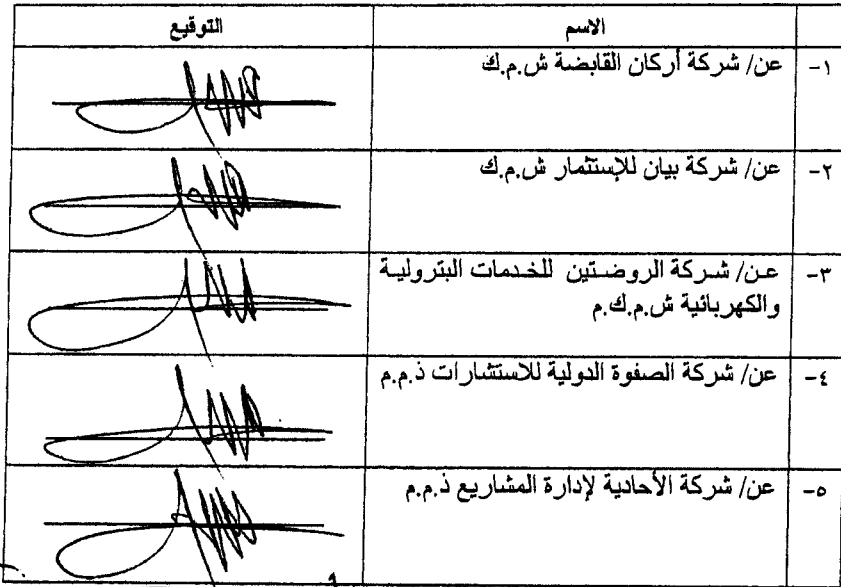 الاسم التوقيع
١- عن/ شركة أركان القابضة ش.م.ك
٢- عن/ شركة بيان للإستثمار ش.م.ك
٣- عن/ شركة الروضتين للخدمات البترولية
والكهربائية ش.م.ك.م
٤- عن/ شركة الصفوة الدولية للاستشارات ذ.م.م
٥- عن/ شركة الأحادية لإدارة المشاريع ذ.م.م